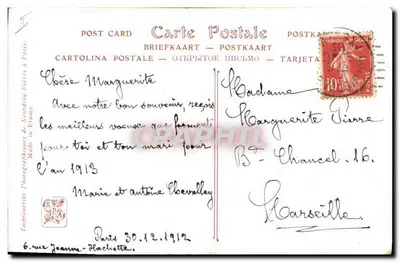 POST CARD Carte Postale POSTKARTE
BRIEFKAART — POSTKAART
CARTOLINA POSTALE — ОТКРЫТОЕ ПИСЬМО — TARJETA
Chère Marguerite
Avec notre bon souvenir, reçois
les meilleurs voeux que forment
pour toi et ton mari pour
l'an 1913
Marie et Antoine Chevalley
Paris 30.12.1912
6. rue Jeanne-Hachette
Madame
Marguerite Pierre
Bd Chancel. 16
Marseille
10
Imprimeries Photographiques de Neurdein Frères à Paris.
Made in France